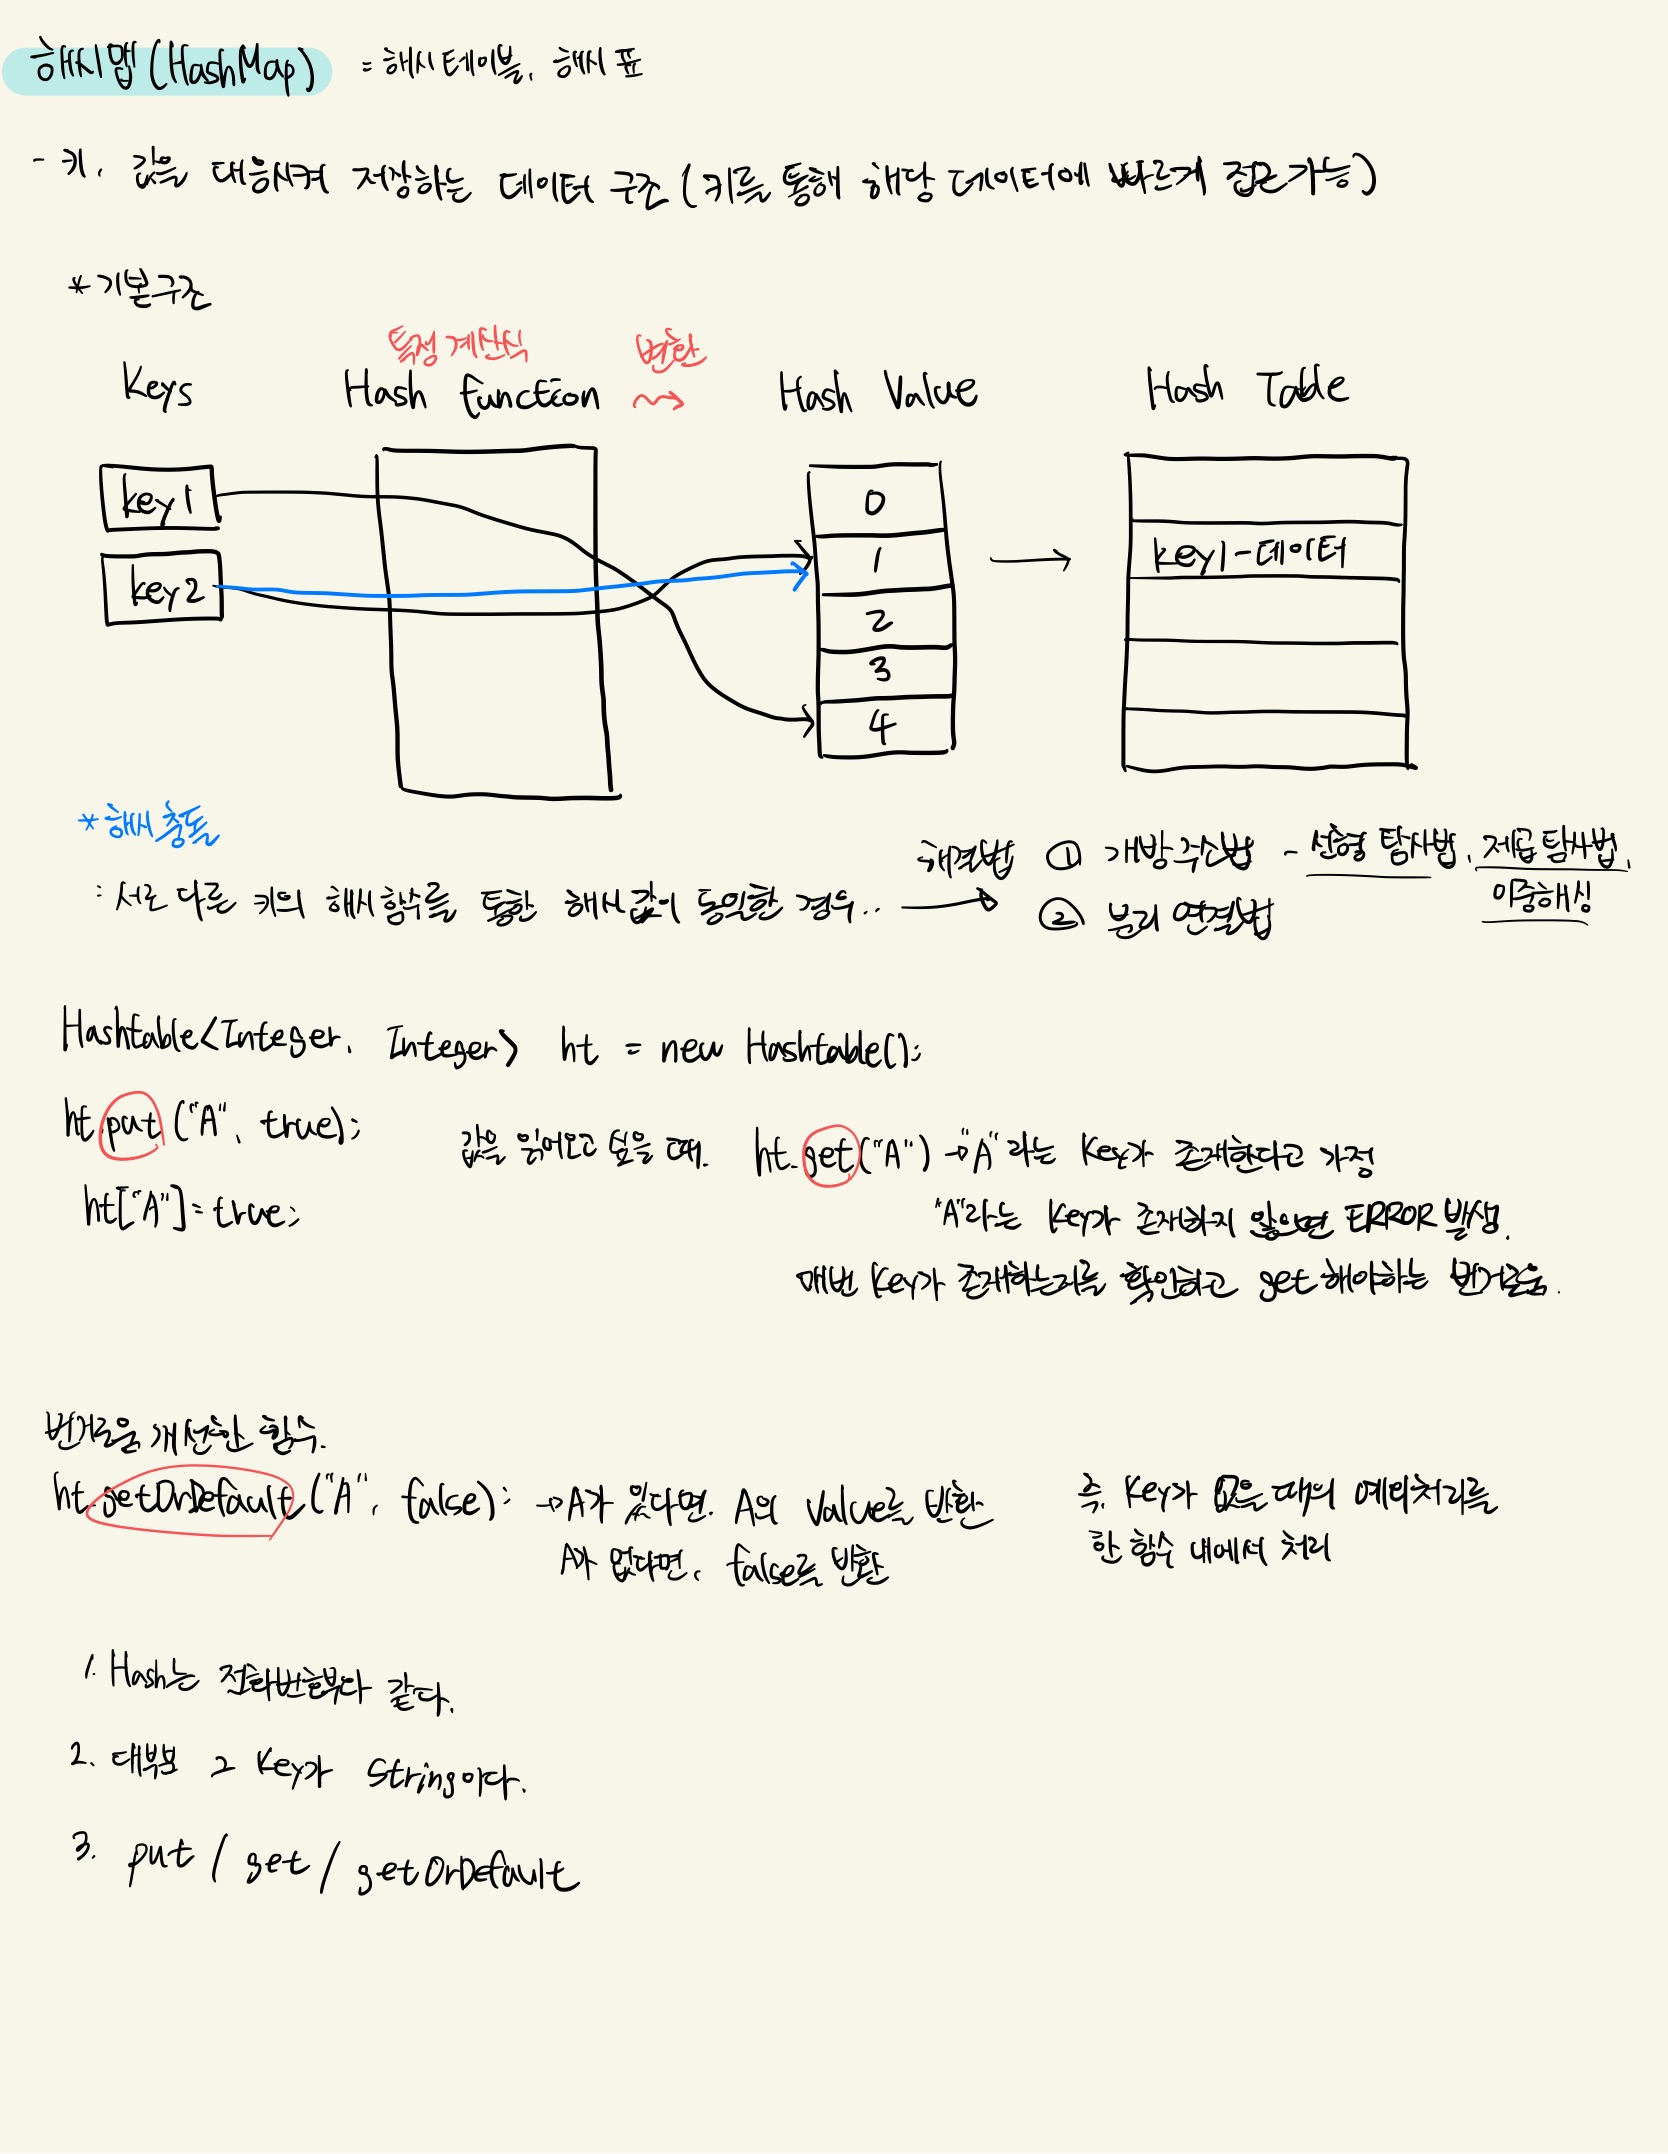 해시맵(HashMap) = 해시 테이블, 해시 표
- 키, 값을 대응시켜 저장하는 데이터 구조 (키를 통해 해당 데이터에 빠르게 접근 가능)
* 기본구조
특정 계산식 변환
Keys Hash function Hash Value Hash Table
key1
key2
0
1
2
3
4
key1-데이터
* 해시 충돌
: 서로 다른 키의 해시 함수를 통한 해시 값이 동일한 경우..
해결법 ① 개방 주소법 - 선형 탐사법, 제곱 탐사법,
이중해싱
② 분리 연결법
Hashtable<Integer, Integer> ht = new Hashtable();
ht.put("A", true);
ht["A"]=true;
값을 읽어오고 싶을 때. ht.get("A") → "A"라는 Key가 존재한다고 가정
"A"라는 Key가 존재하지 않으면 ERROR 발생.
매번 Key가 존재하는지를 확인하고 get해야하는 번거로움.
번거로움 개선한 함수.
ht.getOrDefault("A", false); → A가 있다면. A의 Value를 반환
A가 없다면, false를 반환
즉. Key가 없을 때의 예외처리를
한 함수 내에서 처리
1. Hash는 전화번호부다 같다.
2. 대부분 그 Key가 String이다.
3. put / get / getOrDefault